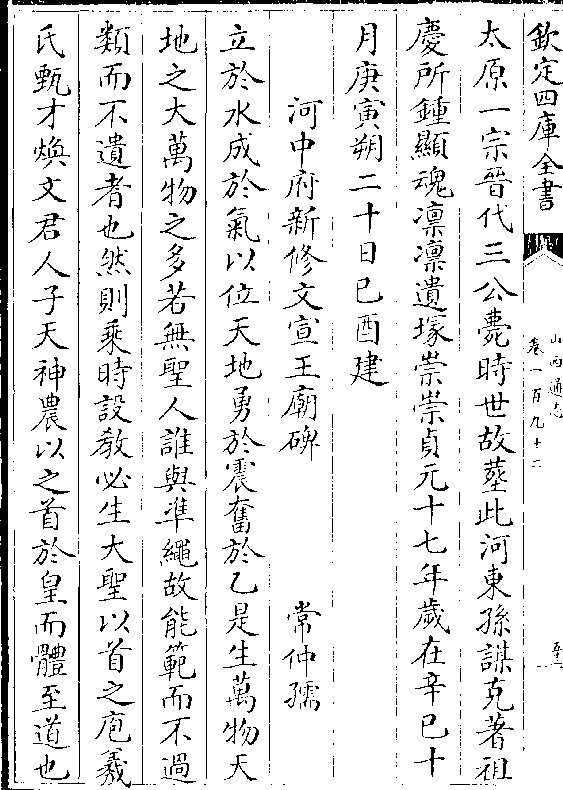 欽定四庫全書
山西通志
卷一百九十二
太原一宗晉代三公薨時世故塟此河東孫謀克著祖
慶所鍾顯魂凜凜遺塚崇崇貞元十七年歲在辛巳十
月庚寅朔二十日己酉建
河中府新修文宣王廟碑 常仲孺
立於水成於氣以位天地勇於震奮於乙是生萬物天
地之大萬物之多若無聖人誰與準繩故能範而不過
類而不遺者也然則乘時設教必生大聖以首之庖羲
氏甄才煥文君人子天神農以之首於皇而體至道也